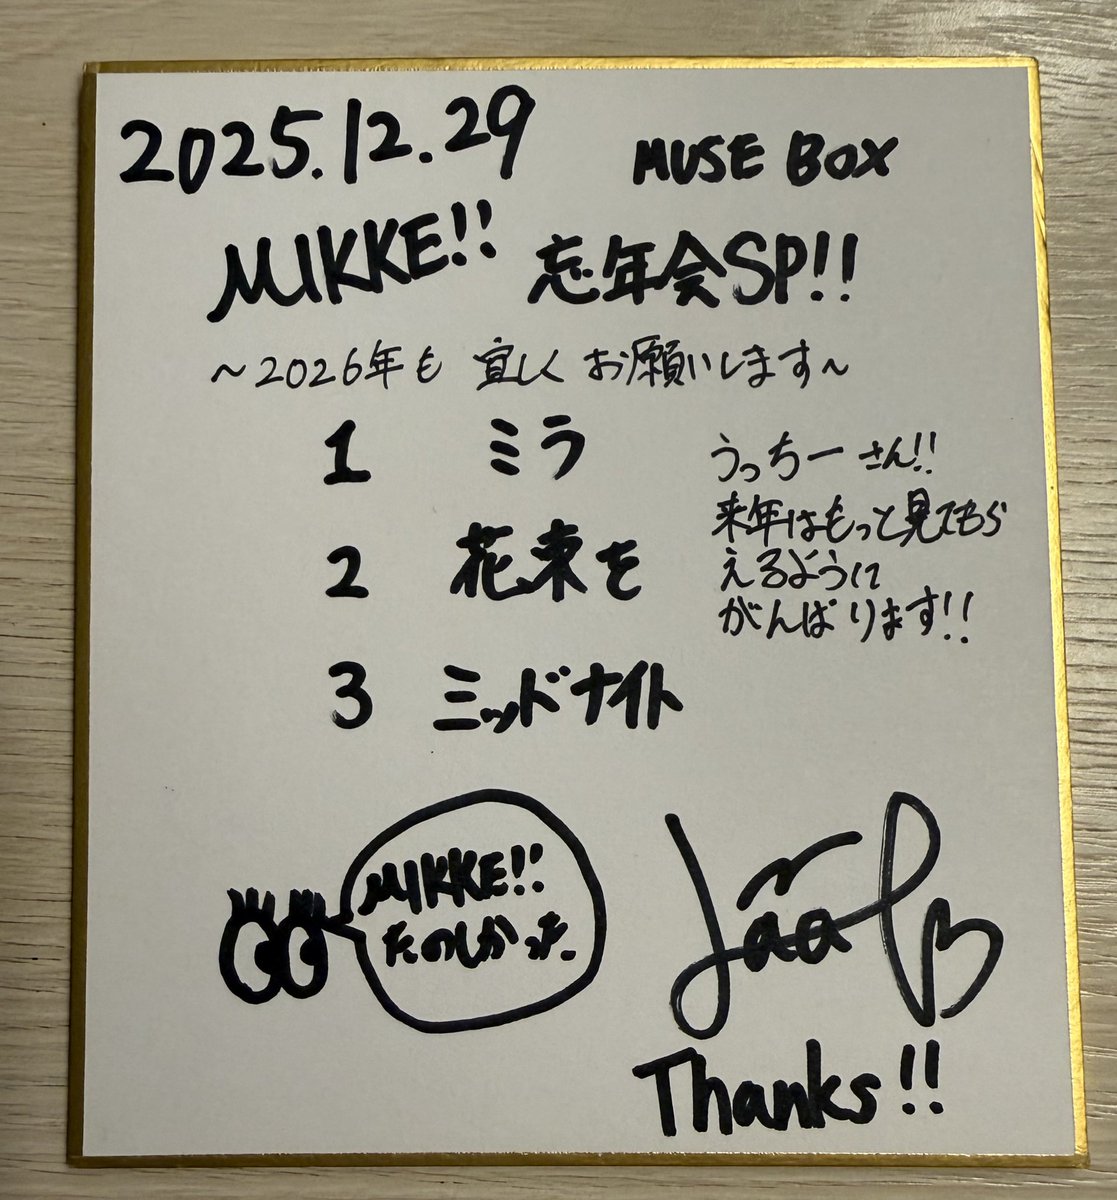 2025.12.29
MUSE BOX
MIKKE!! 忘年会SP!!
~2026年も 宜しく お願いします~
1 ミラ
2 花束を
3 ミッドナイト
うっちーさん!!
来年はもっと見てもら
えるように
がんばります!!
MIKKE!!
たのしかった
Thanks!!